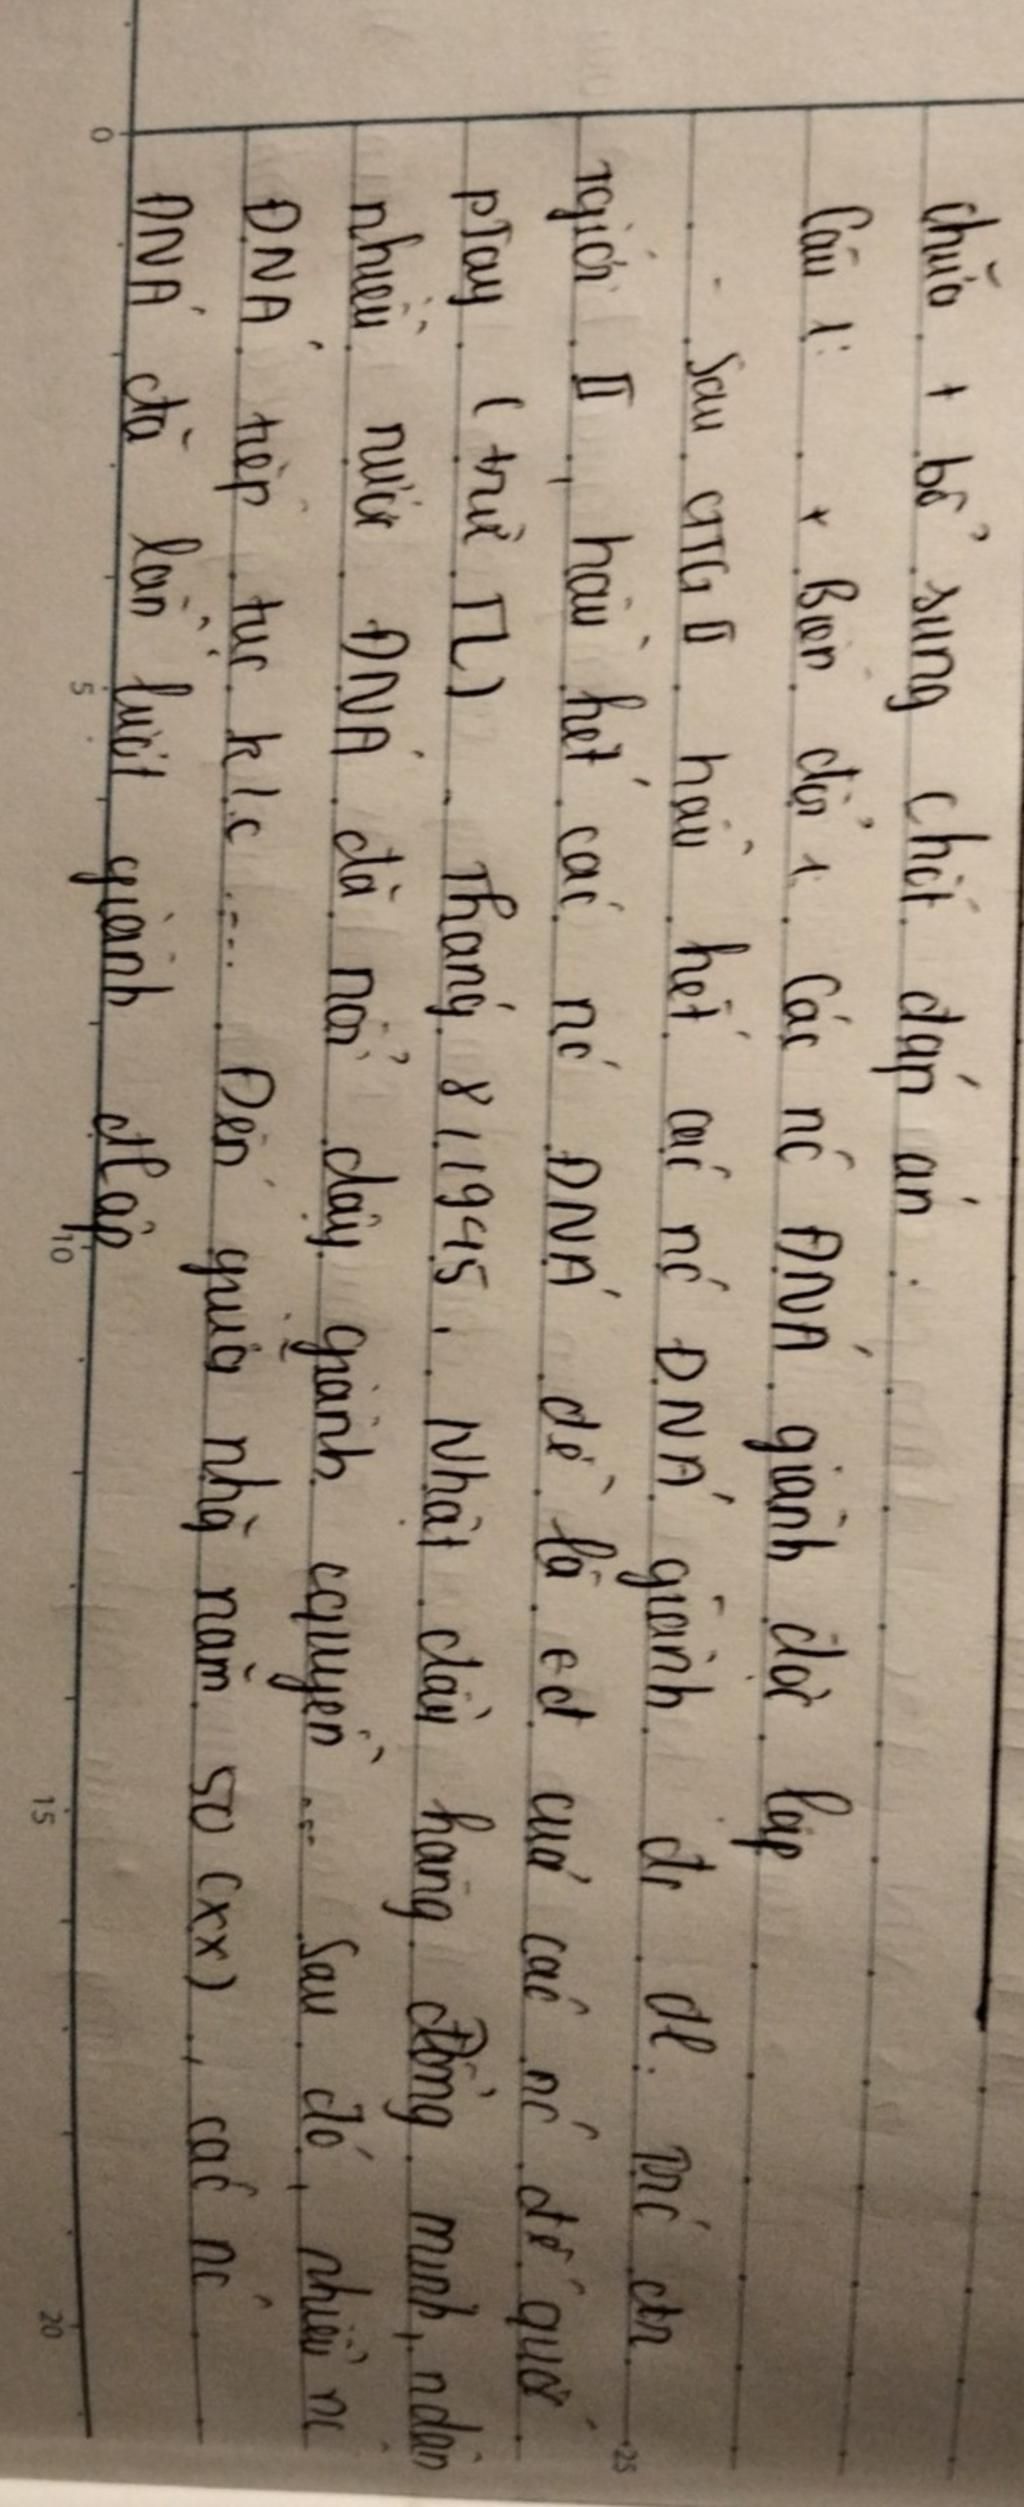 Chữa + bổ sung chốt đáp án :
Câu 1: + Biến đổi 1. Các nc ĐNÁ giành độc lập
- Sau CTTG II hầu hết các nc ĐNÁ giành đc đl. Trc ctr
Tgiới II, hầu hết các nc ĐNÁ đề là tđ của các nc đế quốc
pTây (trừ TL). Tháng 8/1945, Nhật đầu hàng đồng minh, ndân
nhiều nước ĐNÁ đã nổi dậy giành cquyền ... Sau đó, nhiều nc
ĐNÁ tiếp tục k/c .... Đến giữa những năm 50 (XX), các nc
ĐNÁ đã lần lượt giành đlập
0
5
10
15
20
25